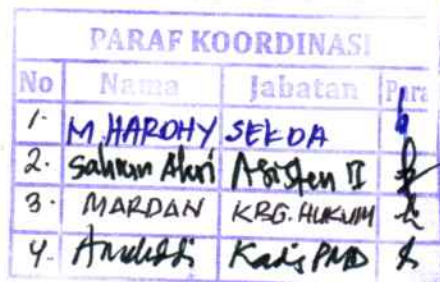 PARAF KOORDINASI
No Nama Jabatan Para
1. M. HAROHY SEKDA
2. Sahrun Asisten II
3. MARDAN KBG. HUKUM
4. Kadis PMD